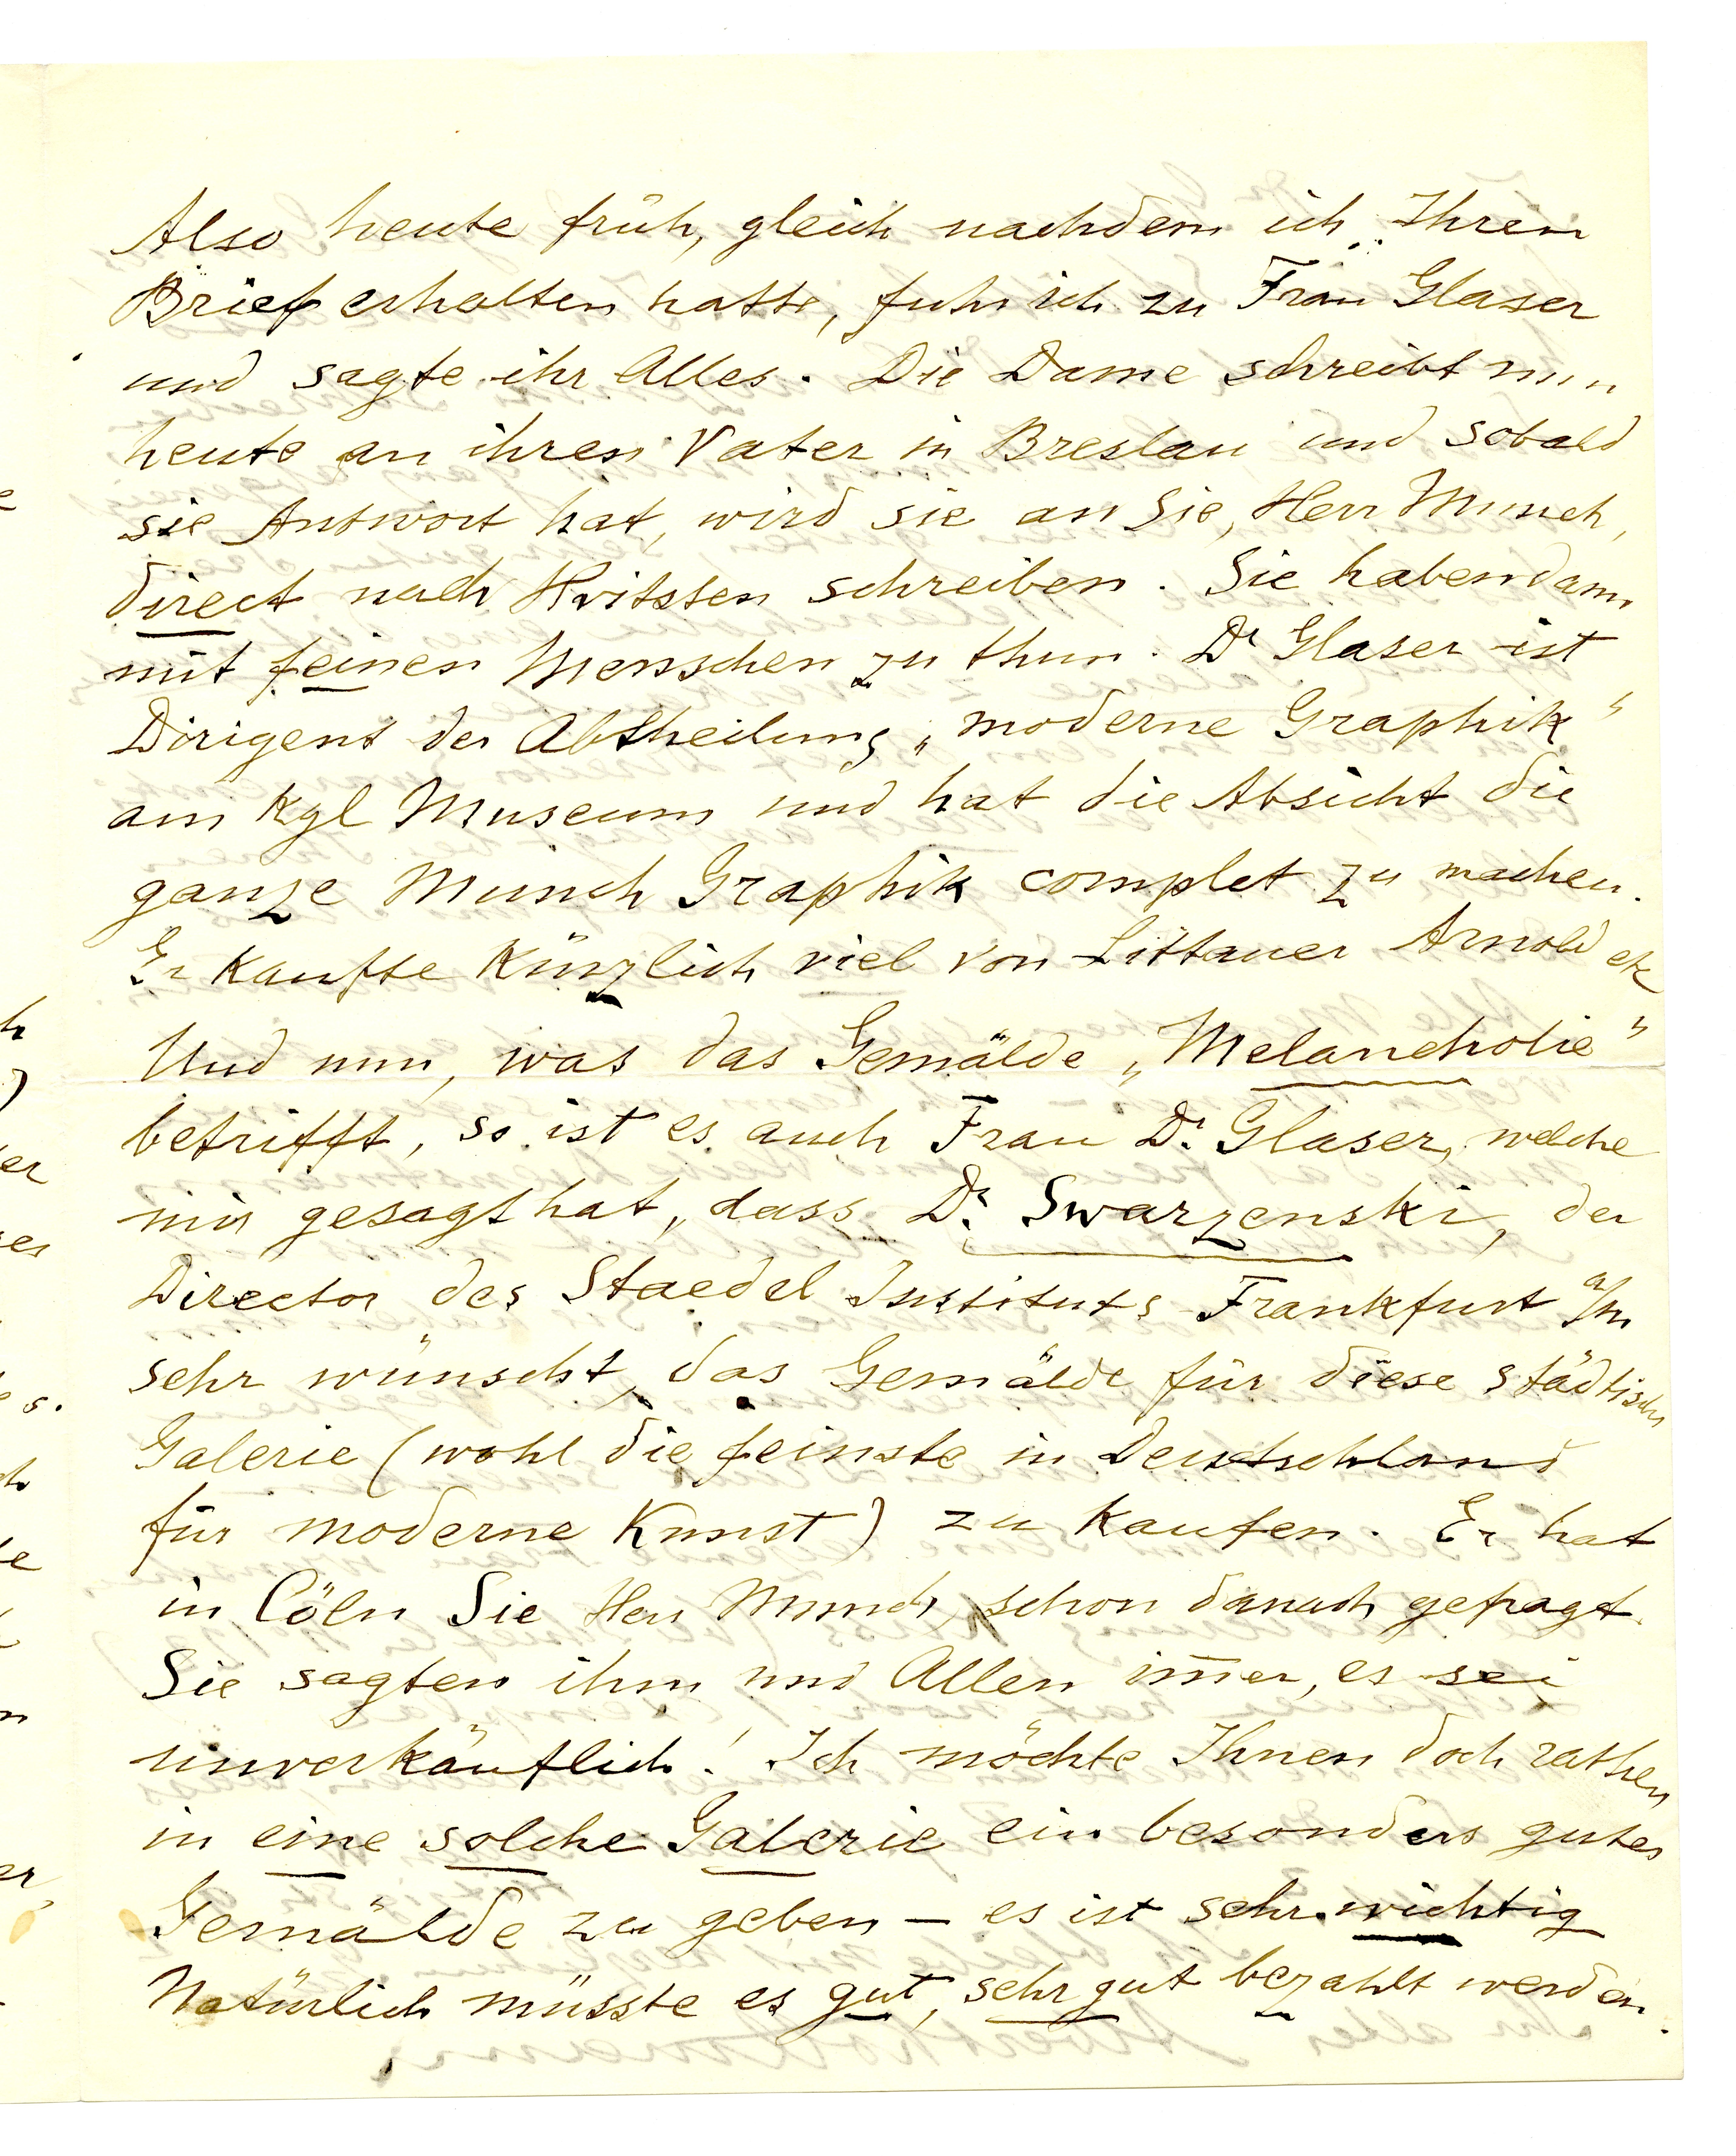 Also heute früh, gleich nachdem ich Ihren
Brief erhalten hatte, fuhr ich zu Frau Glaser
und sagte ihr Alles. Die Dame schreibt nun
heute an ihren Vater in Breslau und sobald
sie Antwort hat, wird sie an Sie, Herr Munch,
direct nach Hvitsten schreiben. Sie haben dann
mit feinen Menschen zu thun. Dr Glaser ist
Dirigent der Abtheilung „moderne Graphik“
am Kgl Museum und hat die Absicht die
ganze Munch Graphik complet zu machen.
Er kaufte kürzlich viel von Littauer Arnold etc
Und nun, was das Gemälde „Melancholie“
betrifft, so ist es auch Frau Dr. Glaser, welche
mir gesagt hat, dass Dr. Swarzenski, der
Director des Staedel Instituts Frankfurt a/M
sehr wünscht, das Gemälde für diese städtische
Galerie (wohl die feinste in Deutschland
für moderne Kunst) zu kaufen. Er hat
in Cöln Sie Herr Munch, schon danach gefragt.
Sie sagten ihm und Allen im̅er, es sei
unverkäuflich! Ich möchte Ihnen doch rathen
in eine solche Galerie ein besonders gutes
Gemälde zu geben – es ist sehr wichtig
Natürlich müsste es gut, sehr gut bezahlt werden.